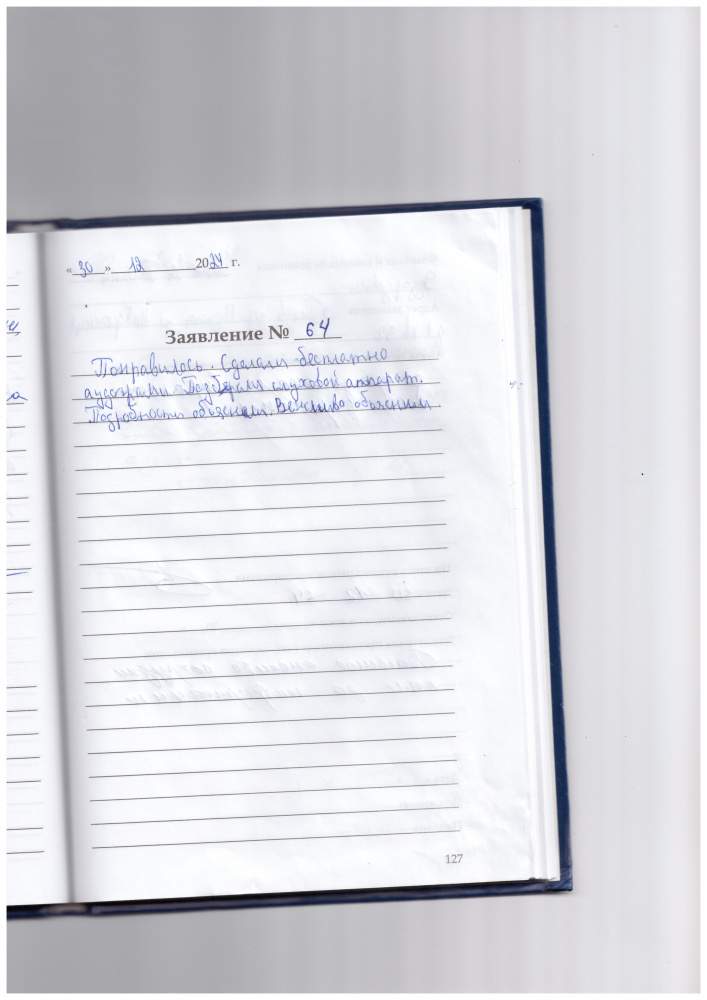 «30» 12 2024 г.
Заявление № 64
Понравилось. Сделали бесплатно
слуховой аппарат.
Подробности Вежливо объяснили
127